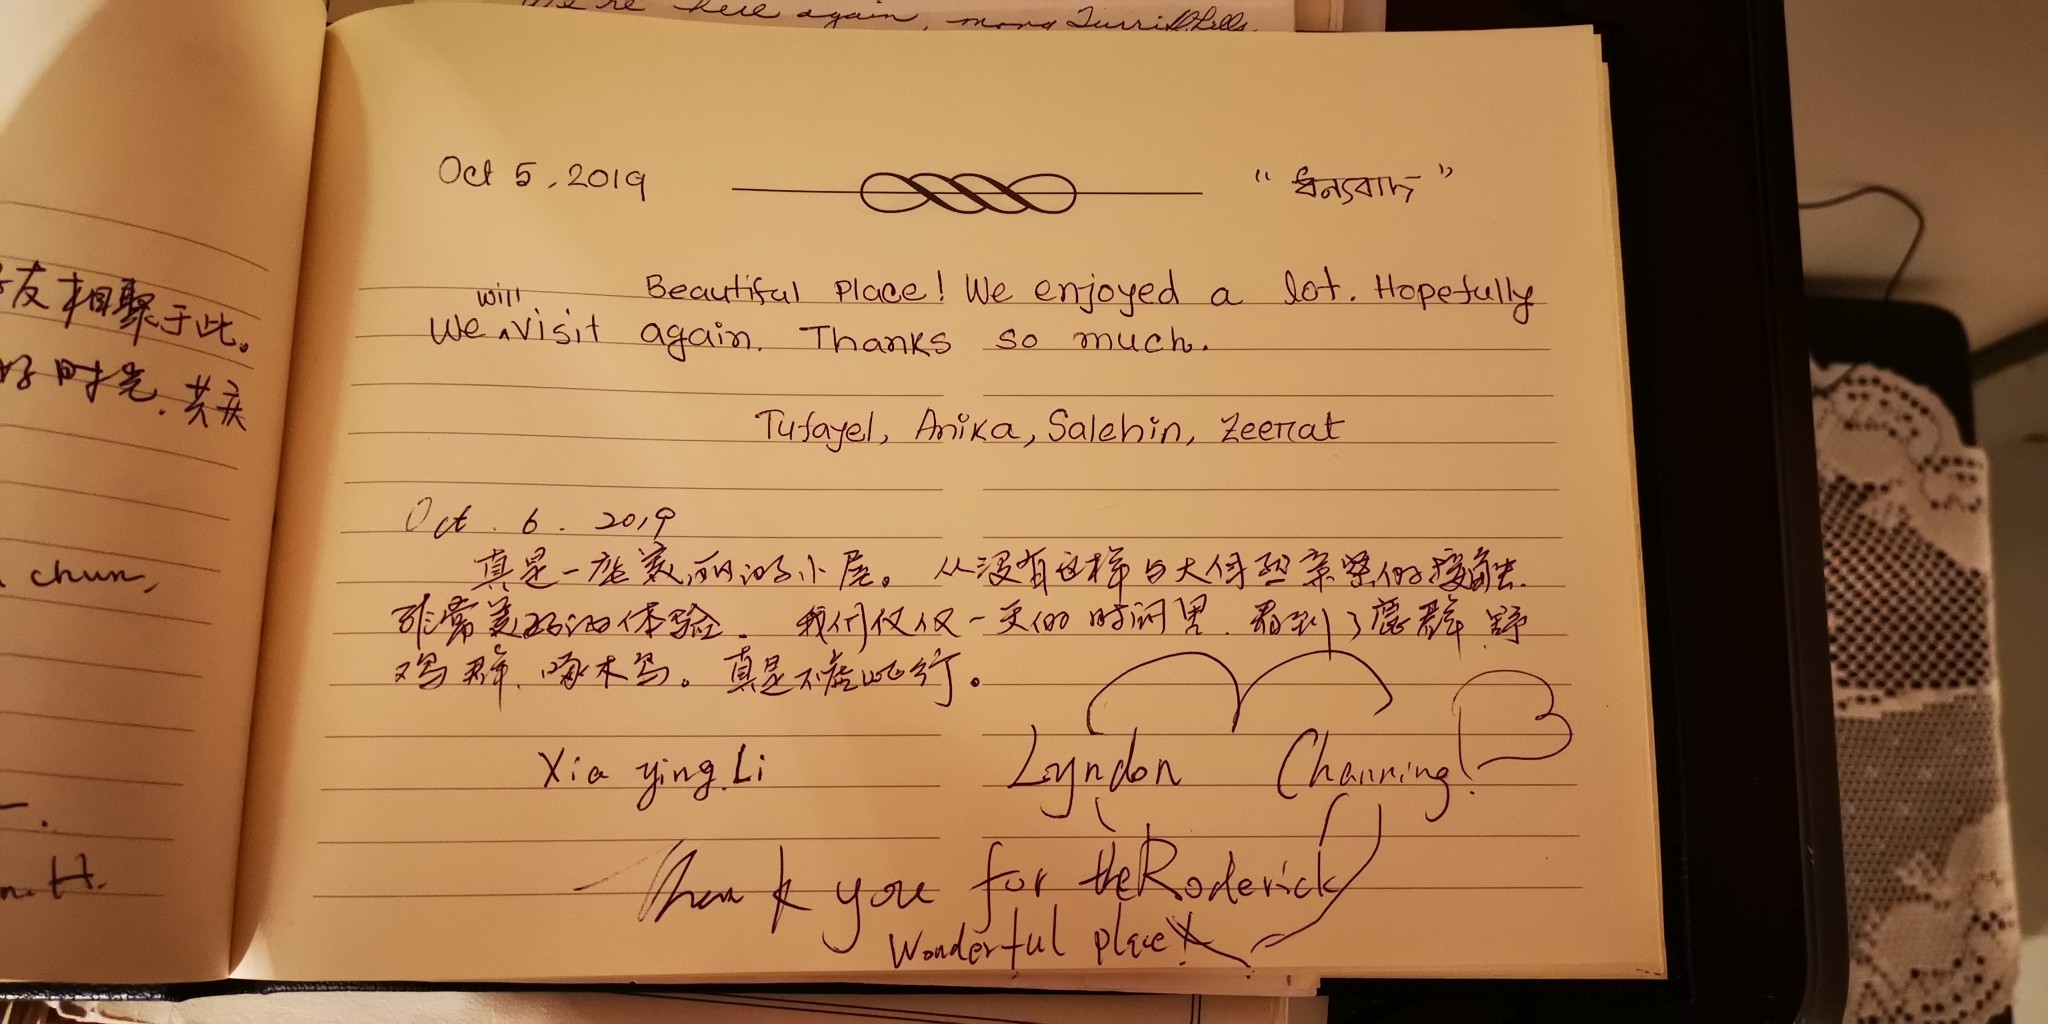 here again,
友相聚于此。
好时光,共度
chun,
n. H.
Oct 5, 2019
" ধন্যবাদ "
Beautiful Place! We enjoyed a lot. Hopefully
We will visit again. Thanks so much.
Tufayel, Anika, Salehin, Zeenat
Oct. 6. 2019
真是一座美丽的小屋。从没有这样与大自然亲密的接触.
非常美好的体验. 我们仅仅一天的时间里. 看到了鹿群. 野
鸡群. 啄木鸟。真是不虚此行。
Xia ying. Li
Lyndon Channing!
Thank you for the Roderick
Wonderful place!